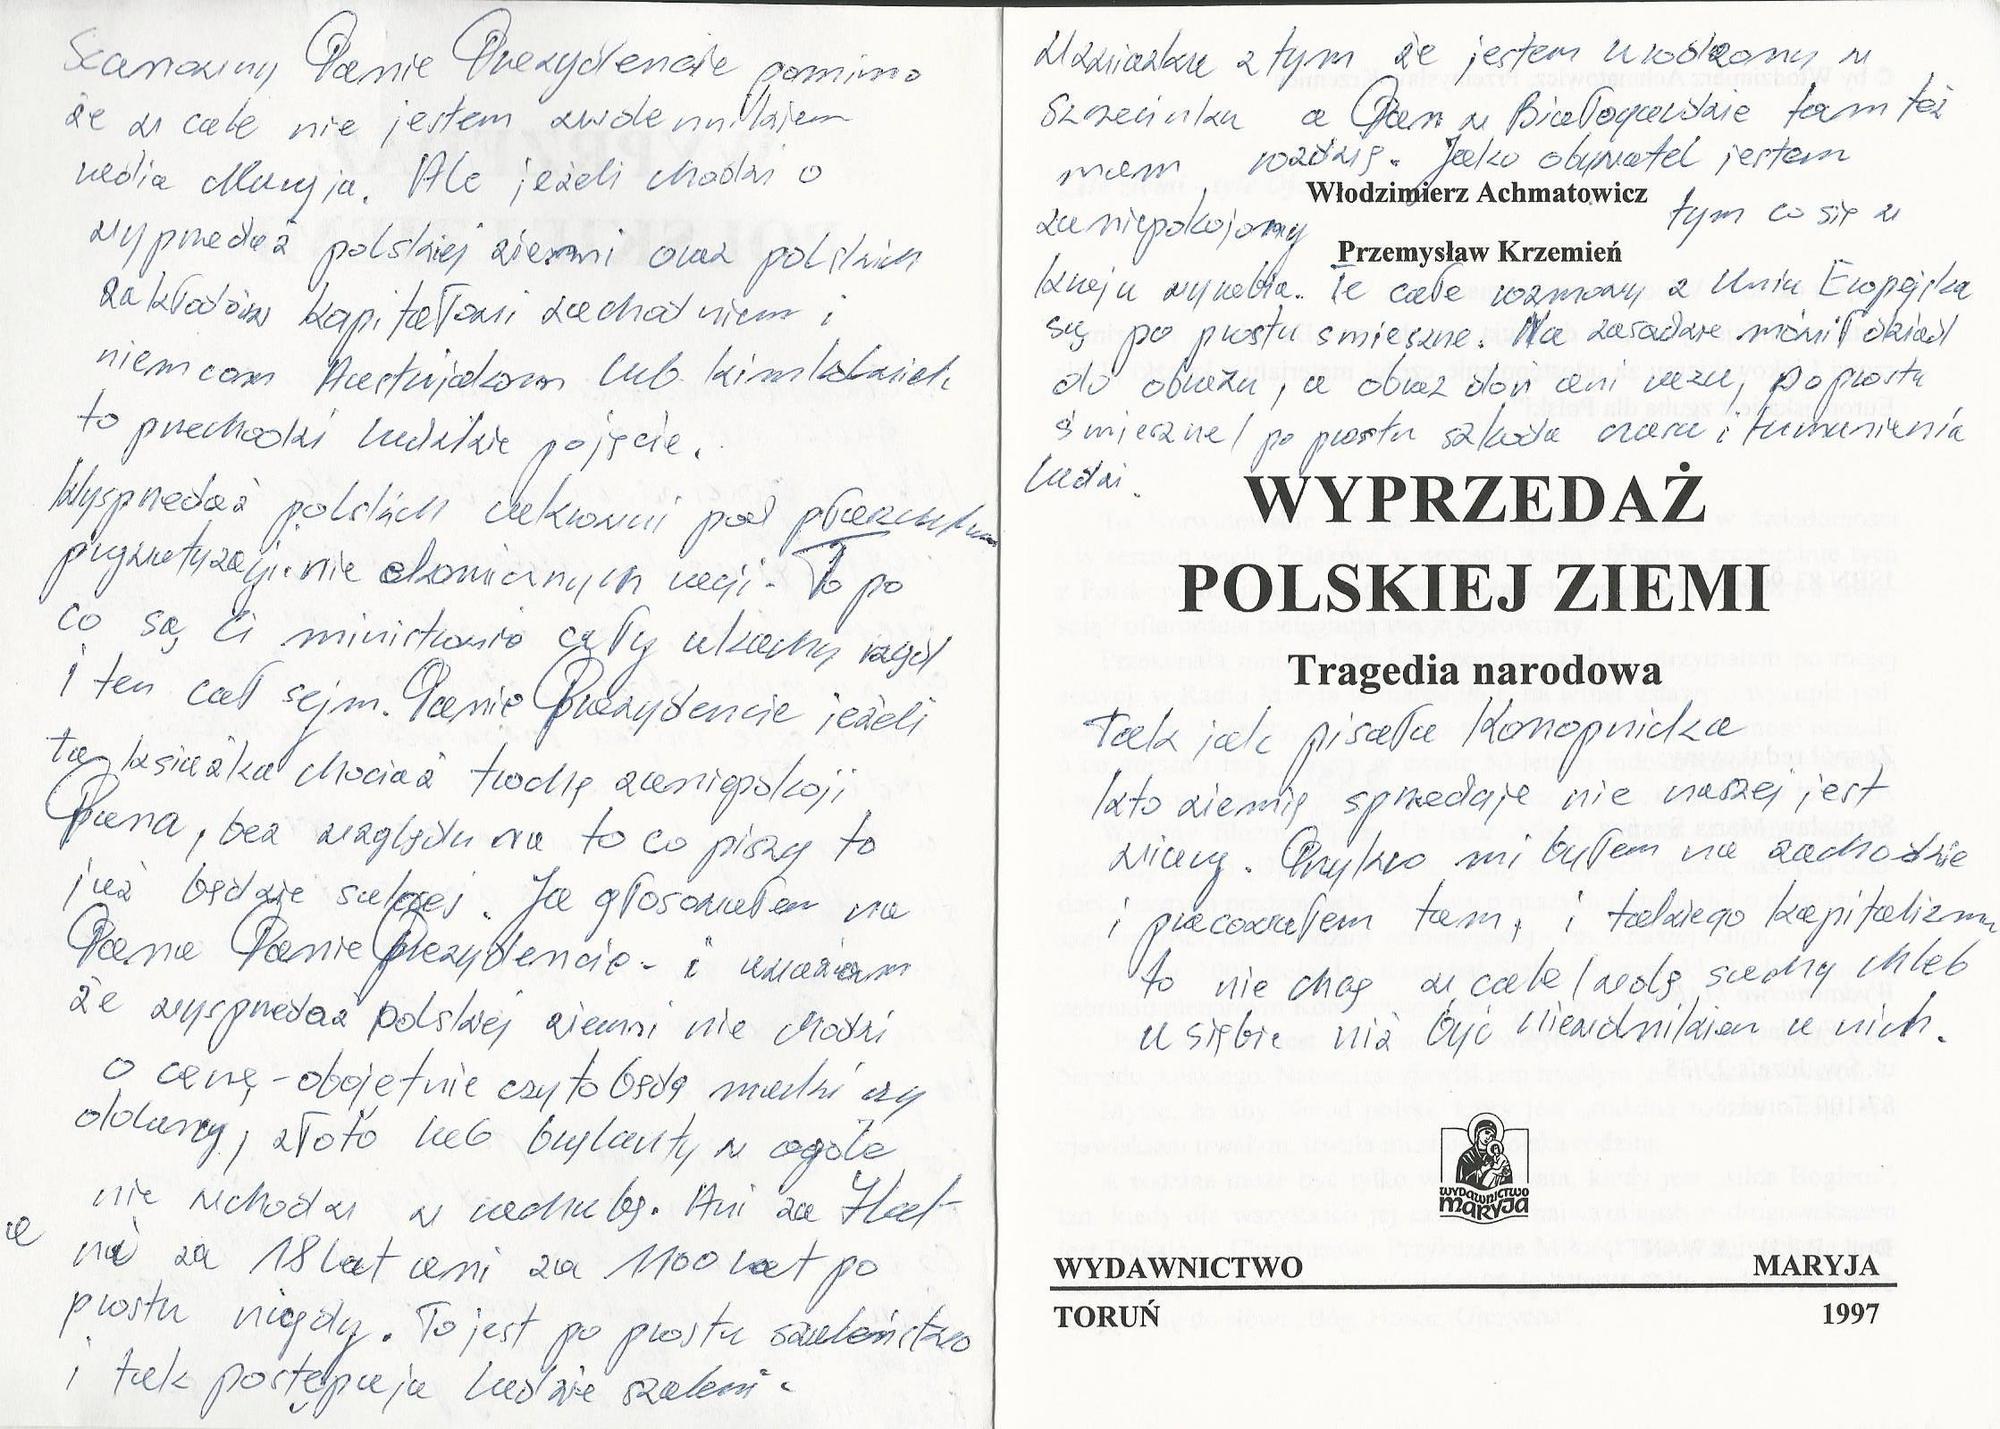 Szanowny Panie Prezydencie pomimo
że w cale nie jestem zwolennikiem
radia Maryja. Ale jeżeli chodzi o
wyprzedaż polskiej ziemi oraz polskich
zakładów kapitałowi zachodniem i
niemcom Austryjakom lub kimkolwiek
to przechodzi ludzkie pojęcie.
Wysprzedaż polskich cukrowni pod płaszczykiem
prywatyzacji nie ekonicznych racji - To po
co są ci ministrowie cały rząd
i ten cał sejm. Panie Prezydencie jeżeli
ta ksiażka chociaż trochę zaniepokoji
Pana, bez względu na to co piszą to
już będzie sukces. Ja głosowałem na
Pana Panie Prezydencie - i uważam
że wysprzedaż polskiej ziemi nie chodzi
o cenę - obojętnie czy to będą marki czy
dolary, złoto lub brylanty w ogóle
nie wchodzi w rachubę. Ani za 7 lat
ani za 18 lat ani za 1100 lat po
prostu nigdy. To jest po prostu szaleństwo
i tak postępują ludzie szaleni.
W związku z tym że jestem urodzony w
Szczecinku a Pan w Białogardzie tam też
mam rodzię. Jako obywatel jestem
Włodzimierz Achmatowicz
zaniepokojony tym co się w
Przemysław Krzemień
kraju wyrabia. Te całe rozmowy z Unią Eropejską
są po prostu smieszne. Na zasadzie mówił dziad
do obrazu, a obraz doń ani razu, po prostu
śmieszne / po prostu szkoda czasu i tumanienia
ludzi.
WYPRZEDAŻ
POLSKIEJ ZIEMI
Tragedia narodowa
Tak jak pisała Konopnicka
kto ziemię sprzedaje nie naszej jest
wiary. Przykro mi byłem na zachodzie
i pracowałem tam, i takiego kapitalizmu
to nie chcę w cale / wolę suchy chleb
u siębie niż być niewolnikiem u nich.
WYDAWNICTWO
MARYJA
WYDAWNICTWO MARYJA
TORUŃ 1997